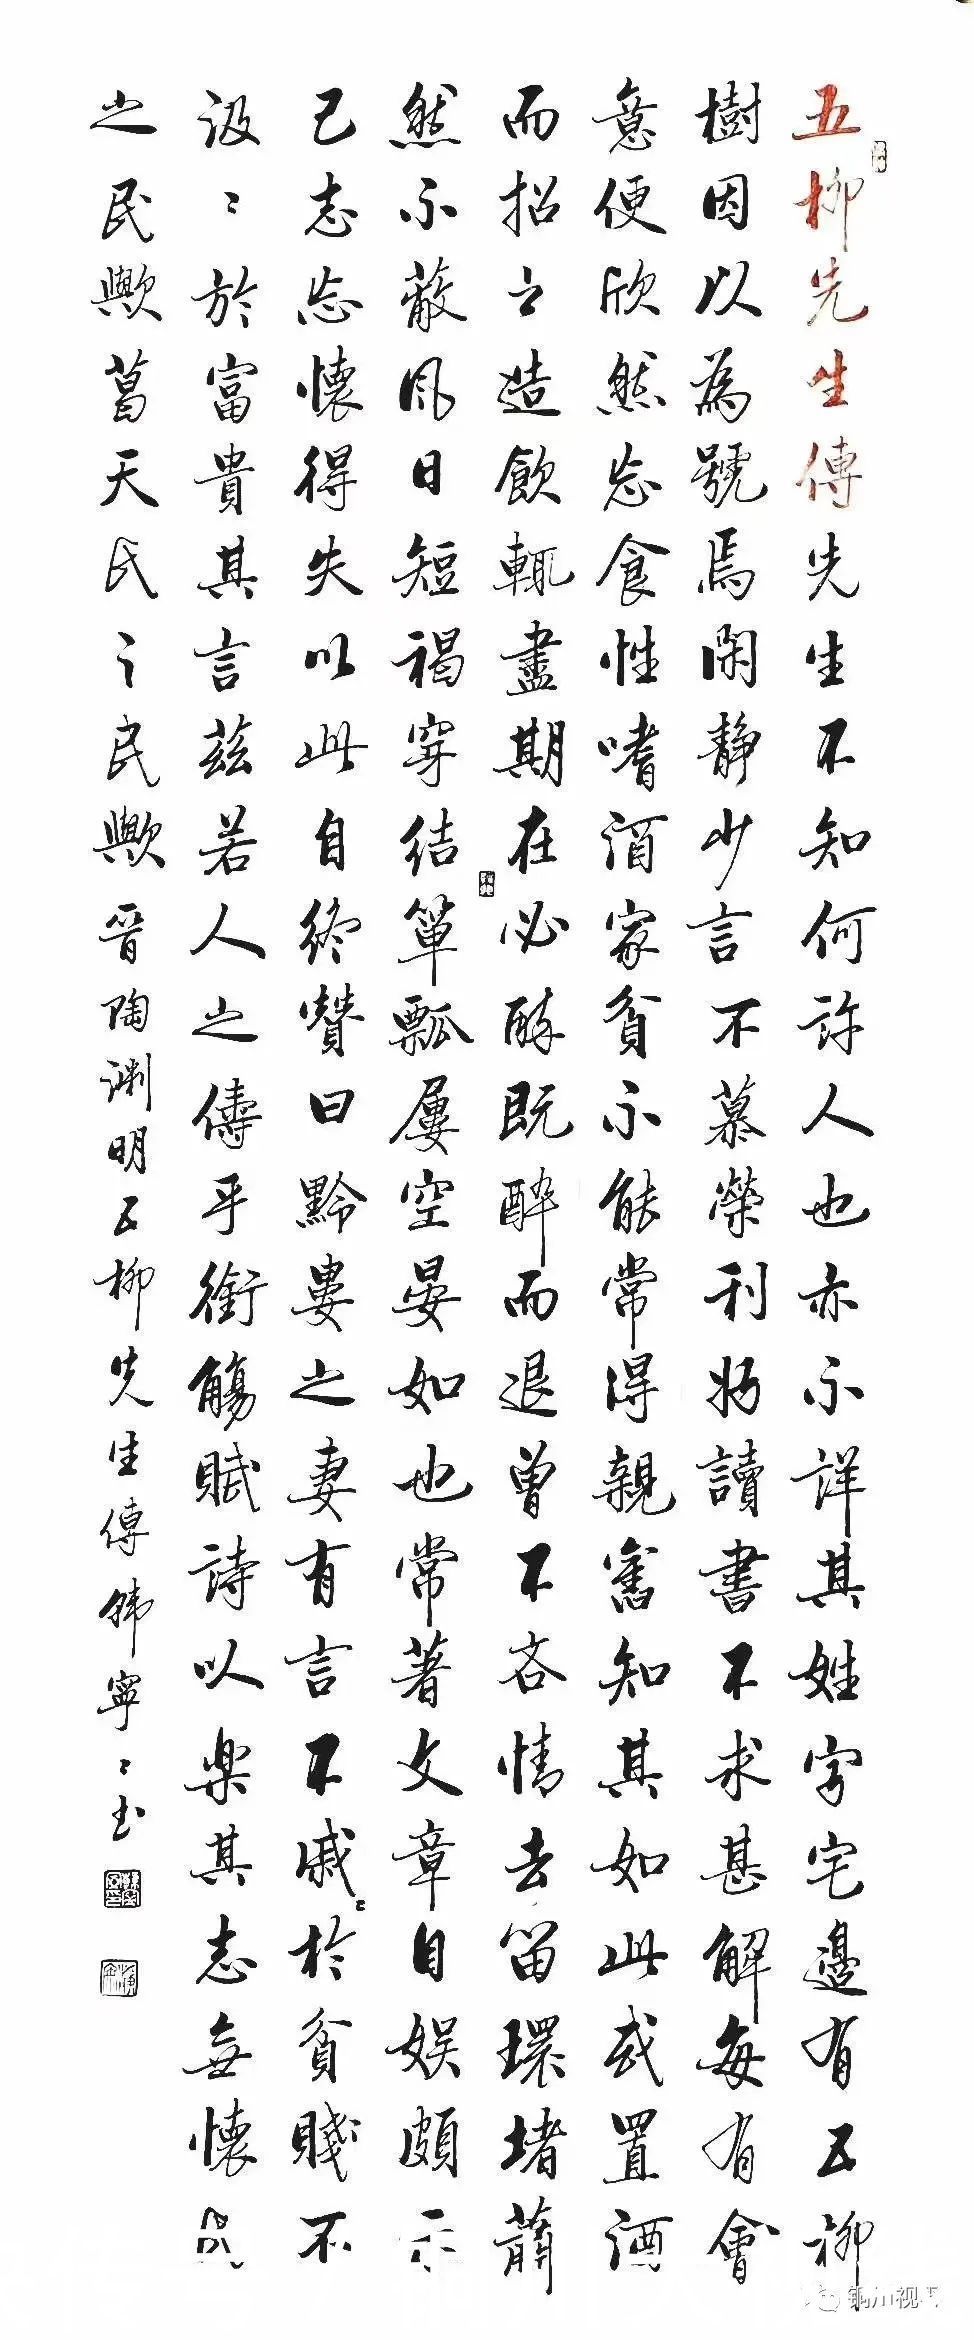 五柳先生傳先生不知何許人也亦不詳其姓字宅邊有五柳
樹因以為號焉閑靜少言不慕榮利好讀書不求甚解每有會
意便欣然忘食性嗜酒家貧不能常得親舊知其如此或置酒
而招之造飲輒盡期在必醉既醉而退曾不吝情去留環堵蕭
然不蔽風日短褐穿結簞瓢屢空晏如也常著文章自娛頗示
己志忘懷得失以此自終贊曰黔婁之妻有言不戚〻於貧賤不
汲〻於富貴其言茲若人之儔乎銜觴賦詩以樂其志無懷氏
之民歟葛天氏之民歟晉陶淵明五柳先生傳韓寧〻書